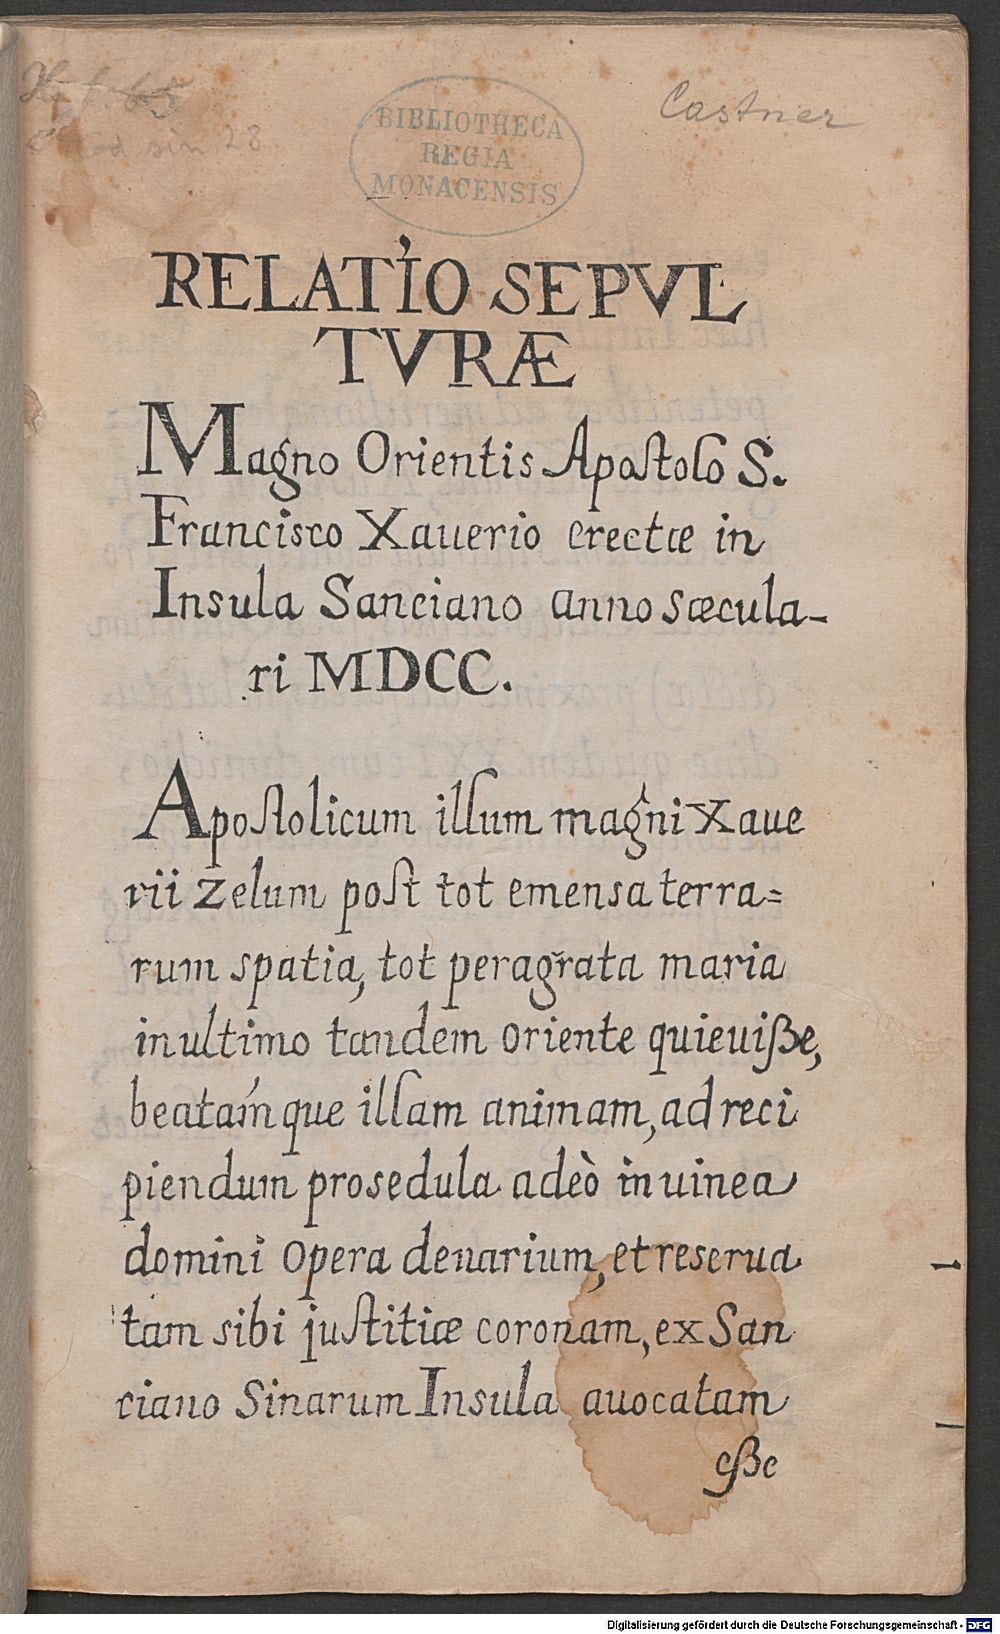 65
Cod sin 28
Castner
BIBLIOTHECA
REGIA
MONACENSIS
RELATIO SEPVL
TVRÆ
Magno Orientis Apostolo S.
Francisco Xauerio erectæ in
Insula Sanciano anno sæcula-
ri MDCC.
Apostolicum illum magni Xaue
rii zelum post tot emensa terra=
rum spatia, tot peragrata maria
in ultimo tandem oriente quieuiße,
beatámque illam animam, ad reci
piendum pro sedula adeò in uinea
domini opera denarium, et reserua
tam sibi justitiæ coronam, ex San
ciano Sinarum Insula auocatam
eße
Digitalisierung gefördert durch die Deutsche Forschungsgemeinschaft - DFG